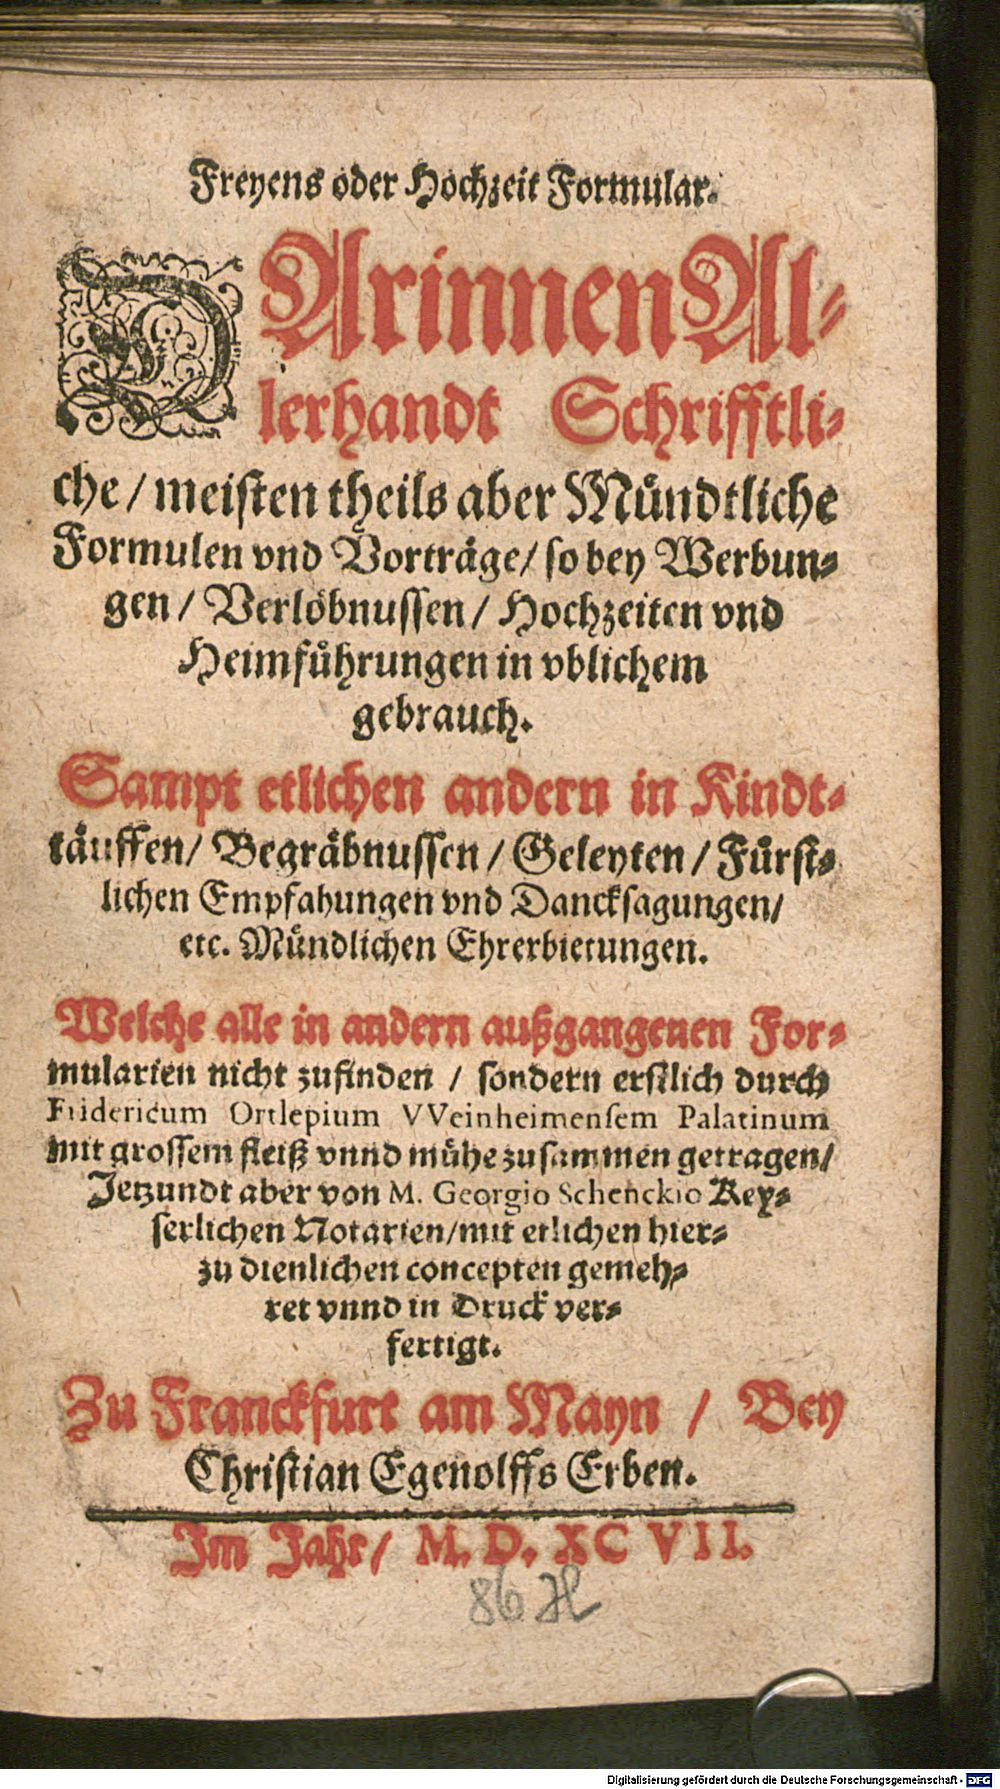 Freyens oder Hochzeit Formular.
DArinnen Al-
lerhandt Schrifftli-
che / meisten theils aber Mündtliche
Formulen vnd Vorträge / so bey Werbun-
gen / Verlöbnussen / Hochzeiten vnd
Heimführungen in vblichem
gebrauch.
Sampt etlichen andern in Kindt-
täuffen / Begräbnussen / Geleyten / Fürst-
lichen Empfahungen vnd Dancksagungen /
etc. Mündlichen Ehrerbietungen.
Welche alle in andern außgangenen For-
mularien nicht zufinden / sondern erstlich durch
Fridericum Ortlepium VVeinheimensem Palatinum
mit grossem fleiß vnnd mühe zusammen getragen /
Jetzundt aber von M. Georgio Schenckio Key-
serlichen Notarien / mit etlichen hier-
zu dienlichen concepten gemeh-
ret vnnd in Druck ver-
fertigt.
Zu Franckfurt am Mayn / Bey
Christian Egenolffs Erben.
Im Jahr / M. D. XC VII.
86
Digitalisierung gefördert durch die Deutsche Forschungsgemeinschaft - DFG